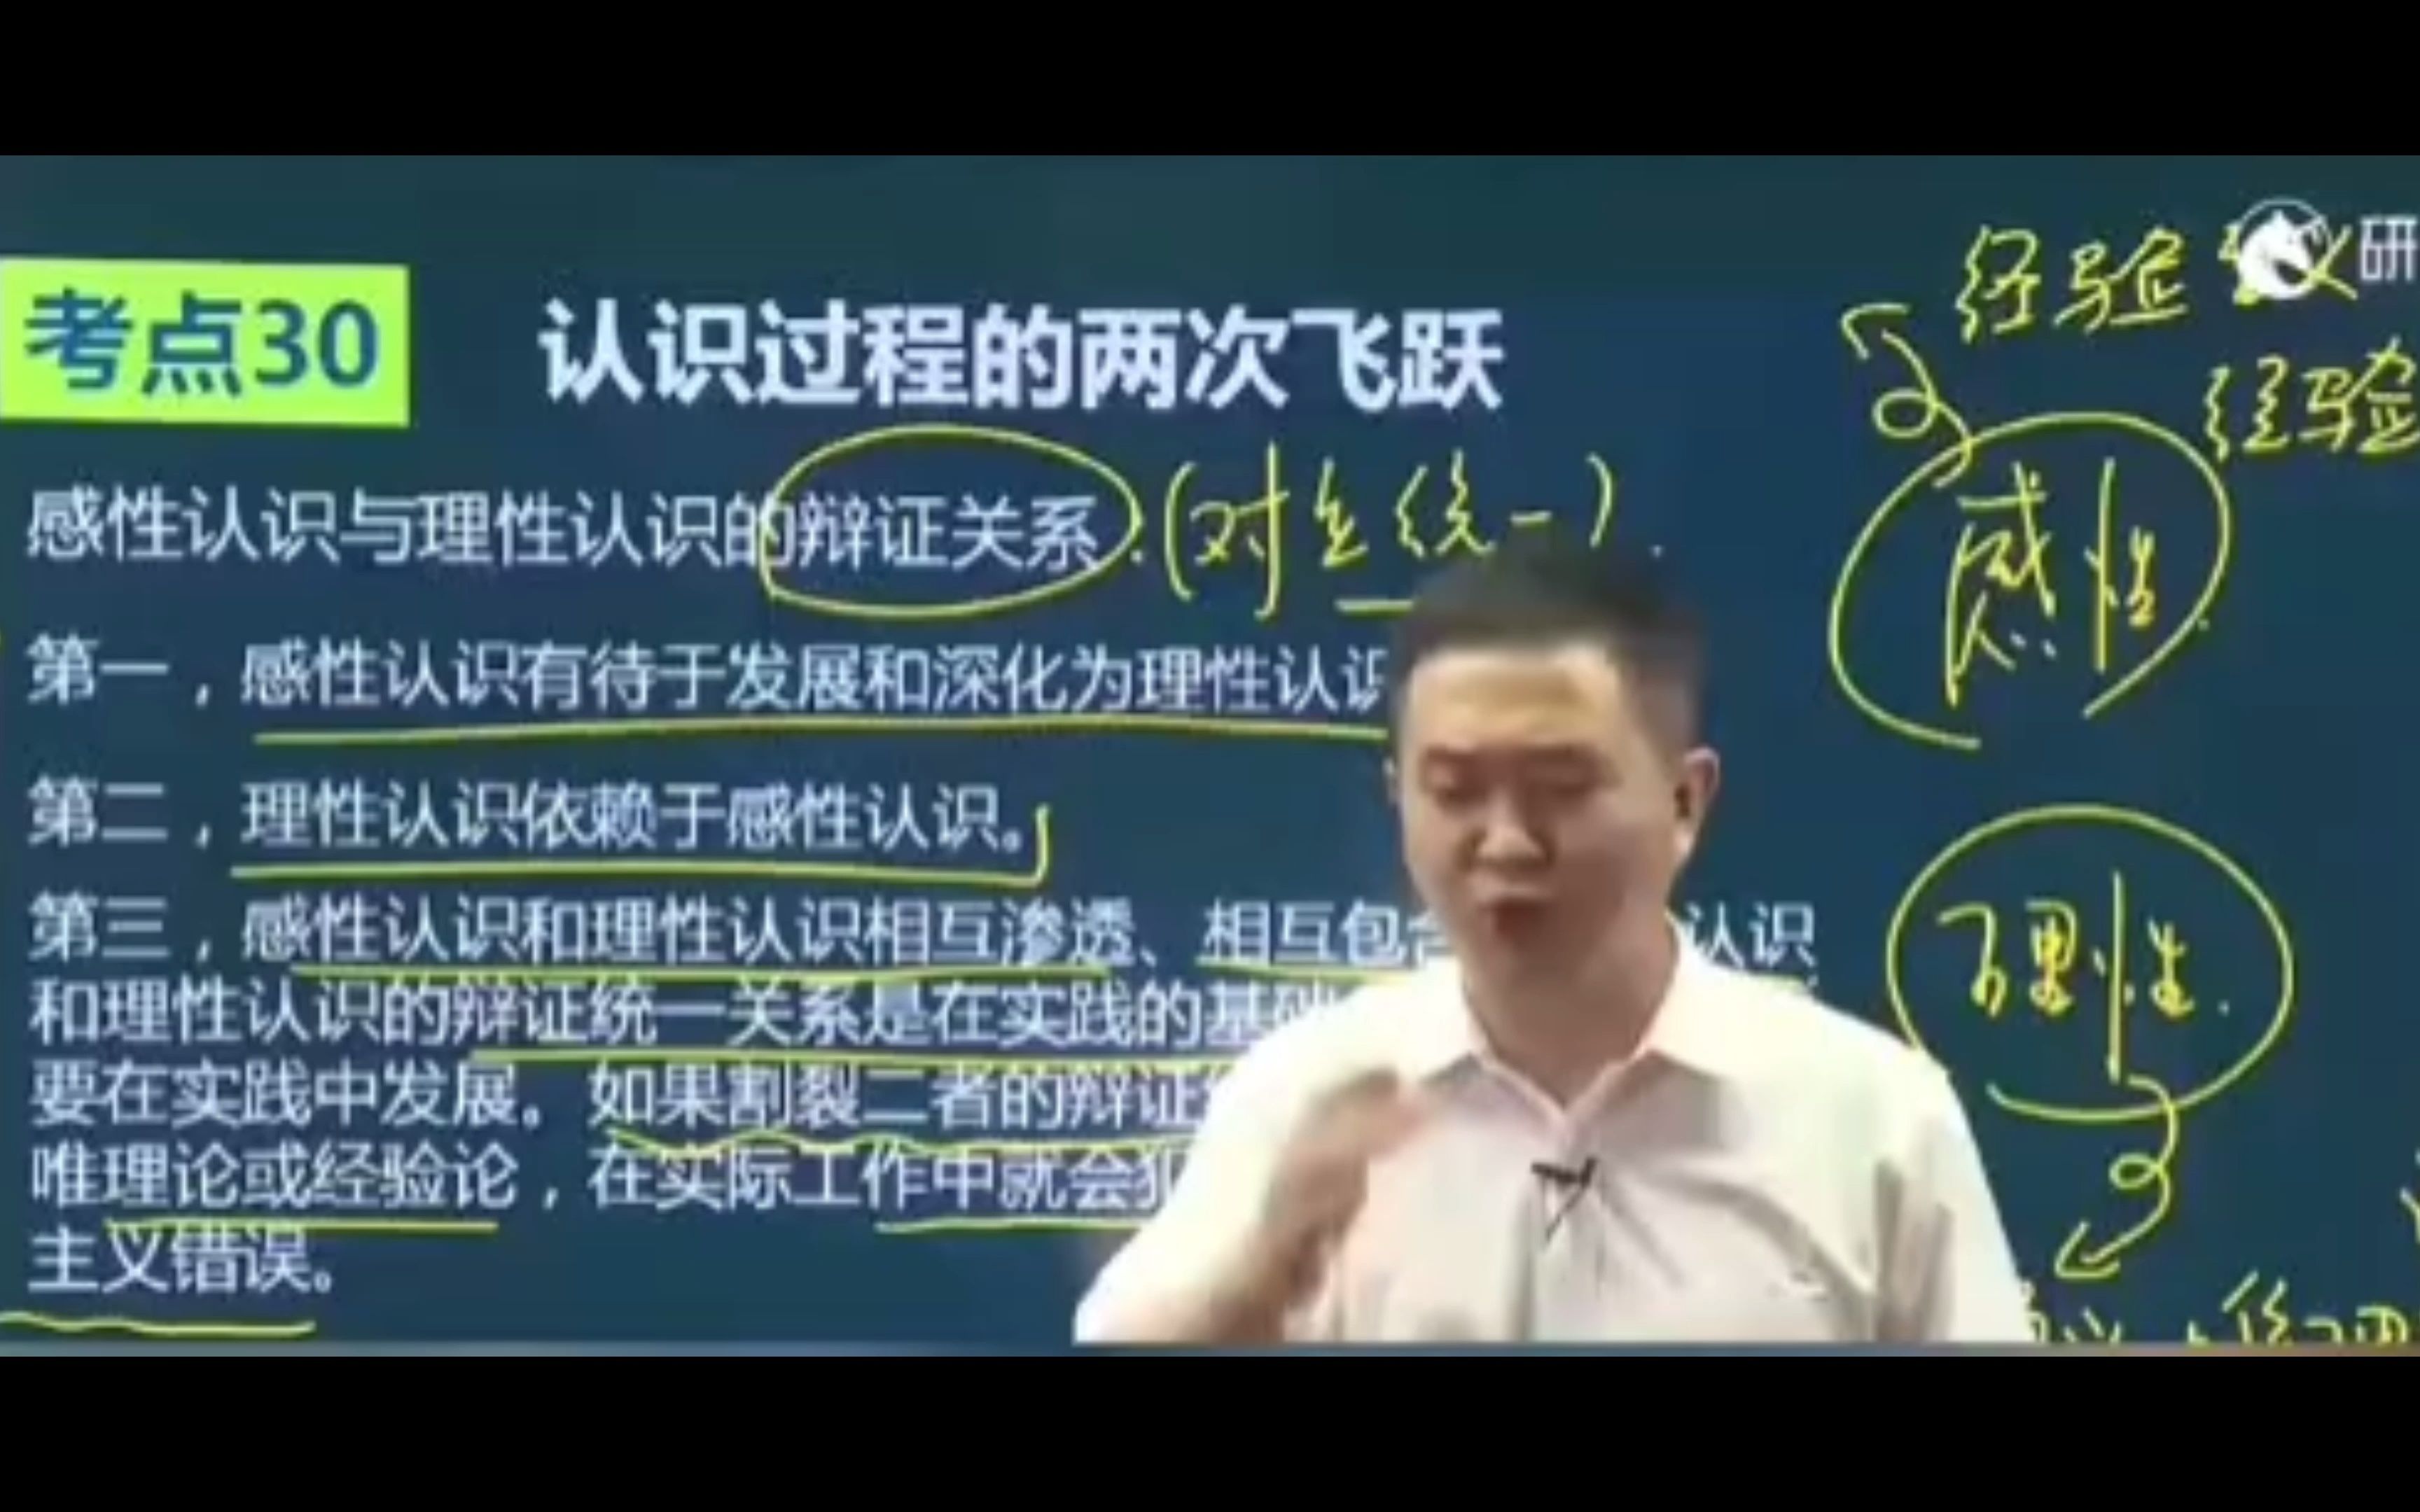 研
经验
经验
考点30
认识过程的两次飞跃
感性认识与理性认识的辩证关系.(对立统一).
感性
第一，感性认识有待于发展和深化为理性认识
第二，理性认识依赖于感性认识。
第三，感性认识和理性认识相互渗透、相互包含 认识
和理性认识的辩证统一关系是在实践的基础
理性.
要在实践中发展。如果割裂二者的辩证
唯理论或经验论，在实际工作中就会犯
主义错误。